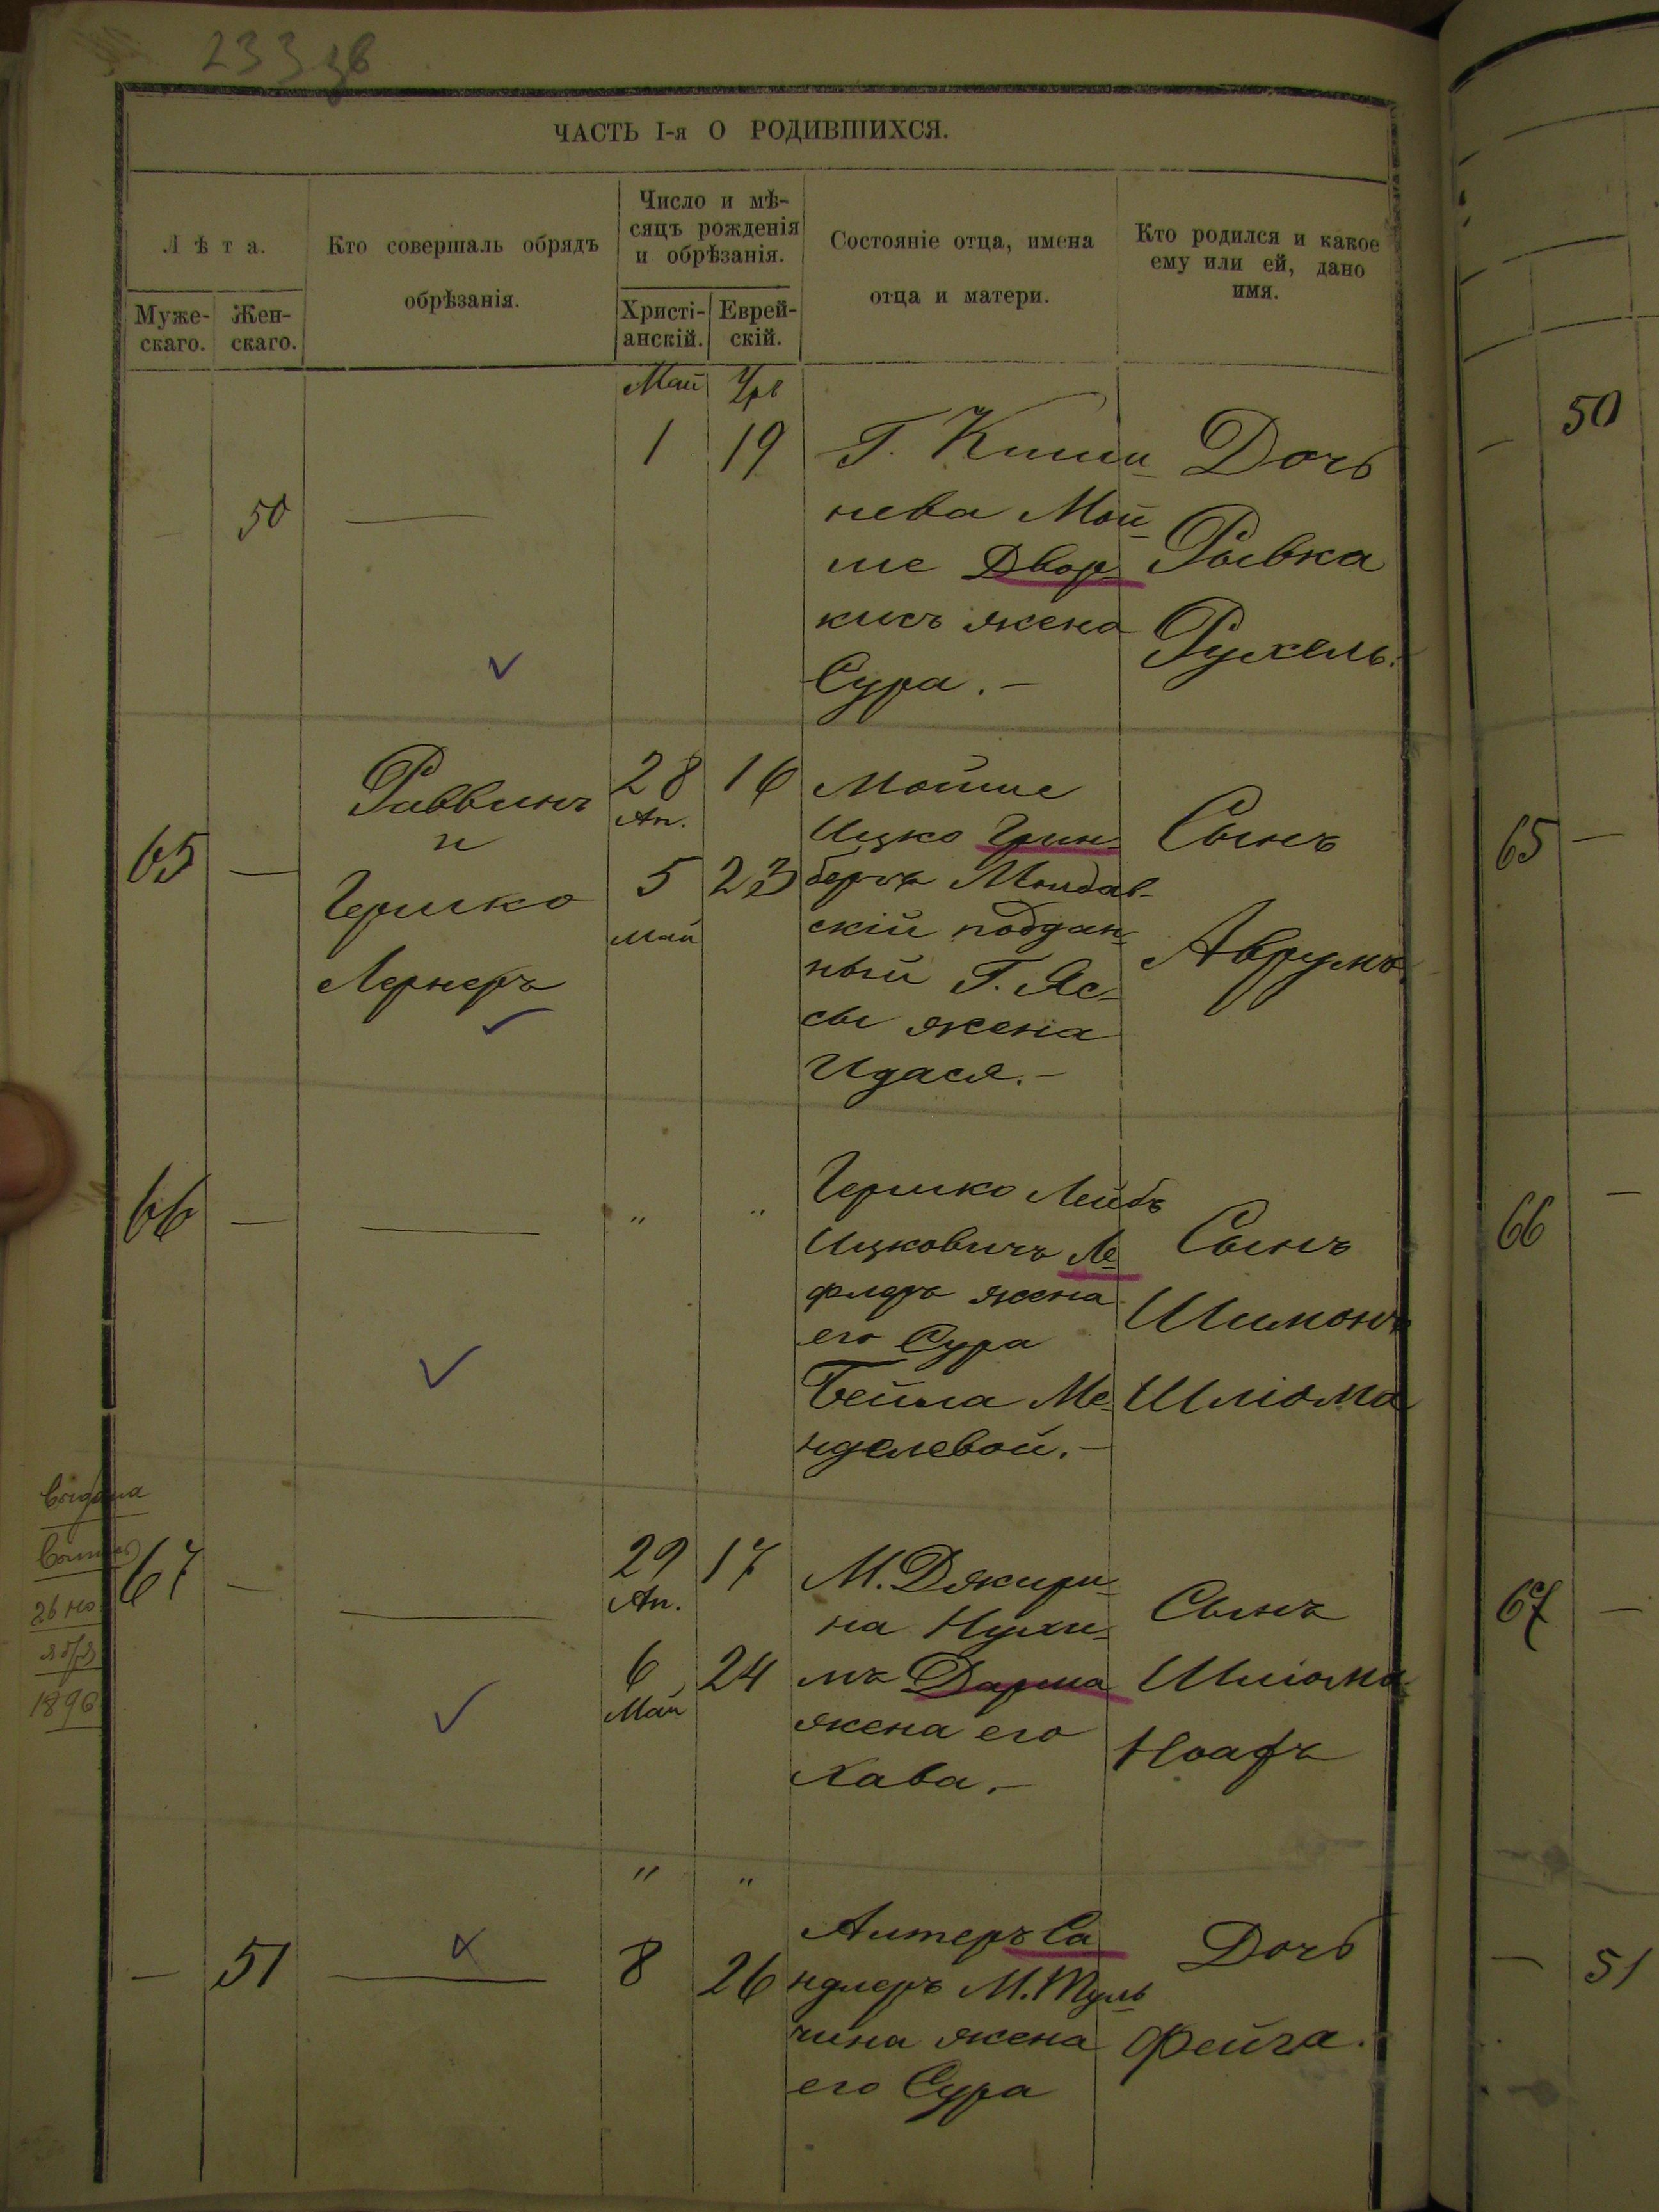 233 зв
ЧАСТЬ I-я О РОДИВШИХСЯ.
Лѣта.
Муже-
скаго.
Жен-
скаго.
Кто совершаль обрядъ
обрѣзанія.
Число и мѣ-
сяцъ рожденія
и обрѣзанія.
Христі-
анскій.
Еврей-
скій.
Состояніе отца, имена
отца и матери.
Кто родился и какое
ему или ей, дано
имя.
Май
50
—
1
19
Г. Киши-
нева Мой-
ше Двор-
кисъ жена
Сура. —
Дочь
Рывка
Рухель.
50
65
—
Раввинъ
и
Гершко
Лернеръ
28
Ап.
5
Май
16
23
Мойше
Ицко Грин-
бергъ Молдав-
скій поддан-
ный Г. Яс-
сы жена
Идася. —
Сынъ
Аврумъ
65 —
66
—
—
"
"
Гершко Лейбъ
Ицковичъ Ле-
флдръ жена
его Сура
Бейла Ме-
нделевой. —
Сынъ
Шимонъ
Шлiома
66 —
26 но-
1896
67
—
—
29
Ап.
6
Май
17
24
М. Джури-
на Нухи-
мъ Дарма
жена его
Хава. —
Сынъ
Шлiома
Ноахъ
67 —
"
"
—
51
—
8
26
Алтеръ Са
ндлеръ М. Туль-
чина жена
его Сура
Дочь
Фейга.
— 51